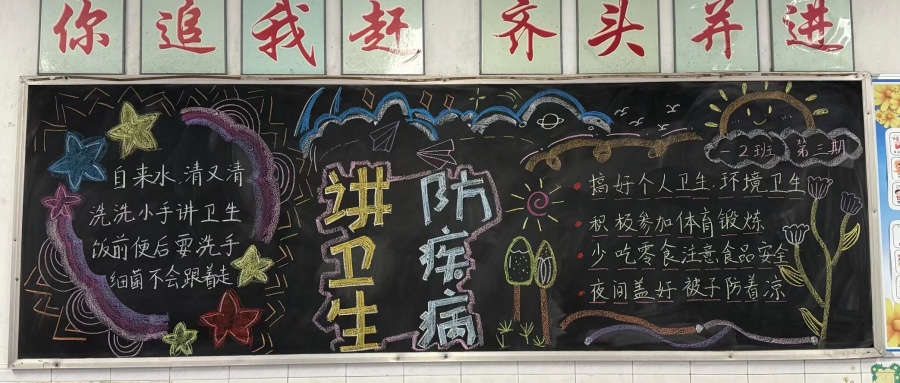 你追我赶 齐头并进
自来水,清又清
洗洗小手讲卫生
饭前便后要洗手
细菌不会跟着走
讲卫生
防疾病
一2班 第三期
搞好个人卫生,环境卫生
积极参加体育锻炼
少吃零食注意食品安全
夜间盖好被子防着凉